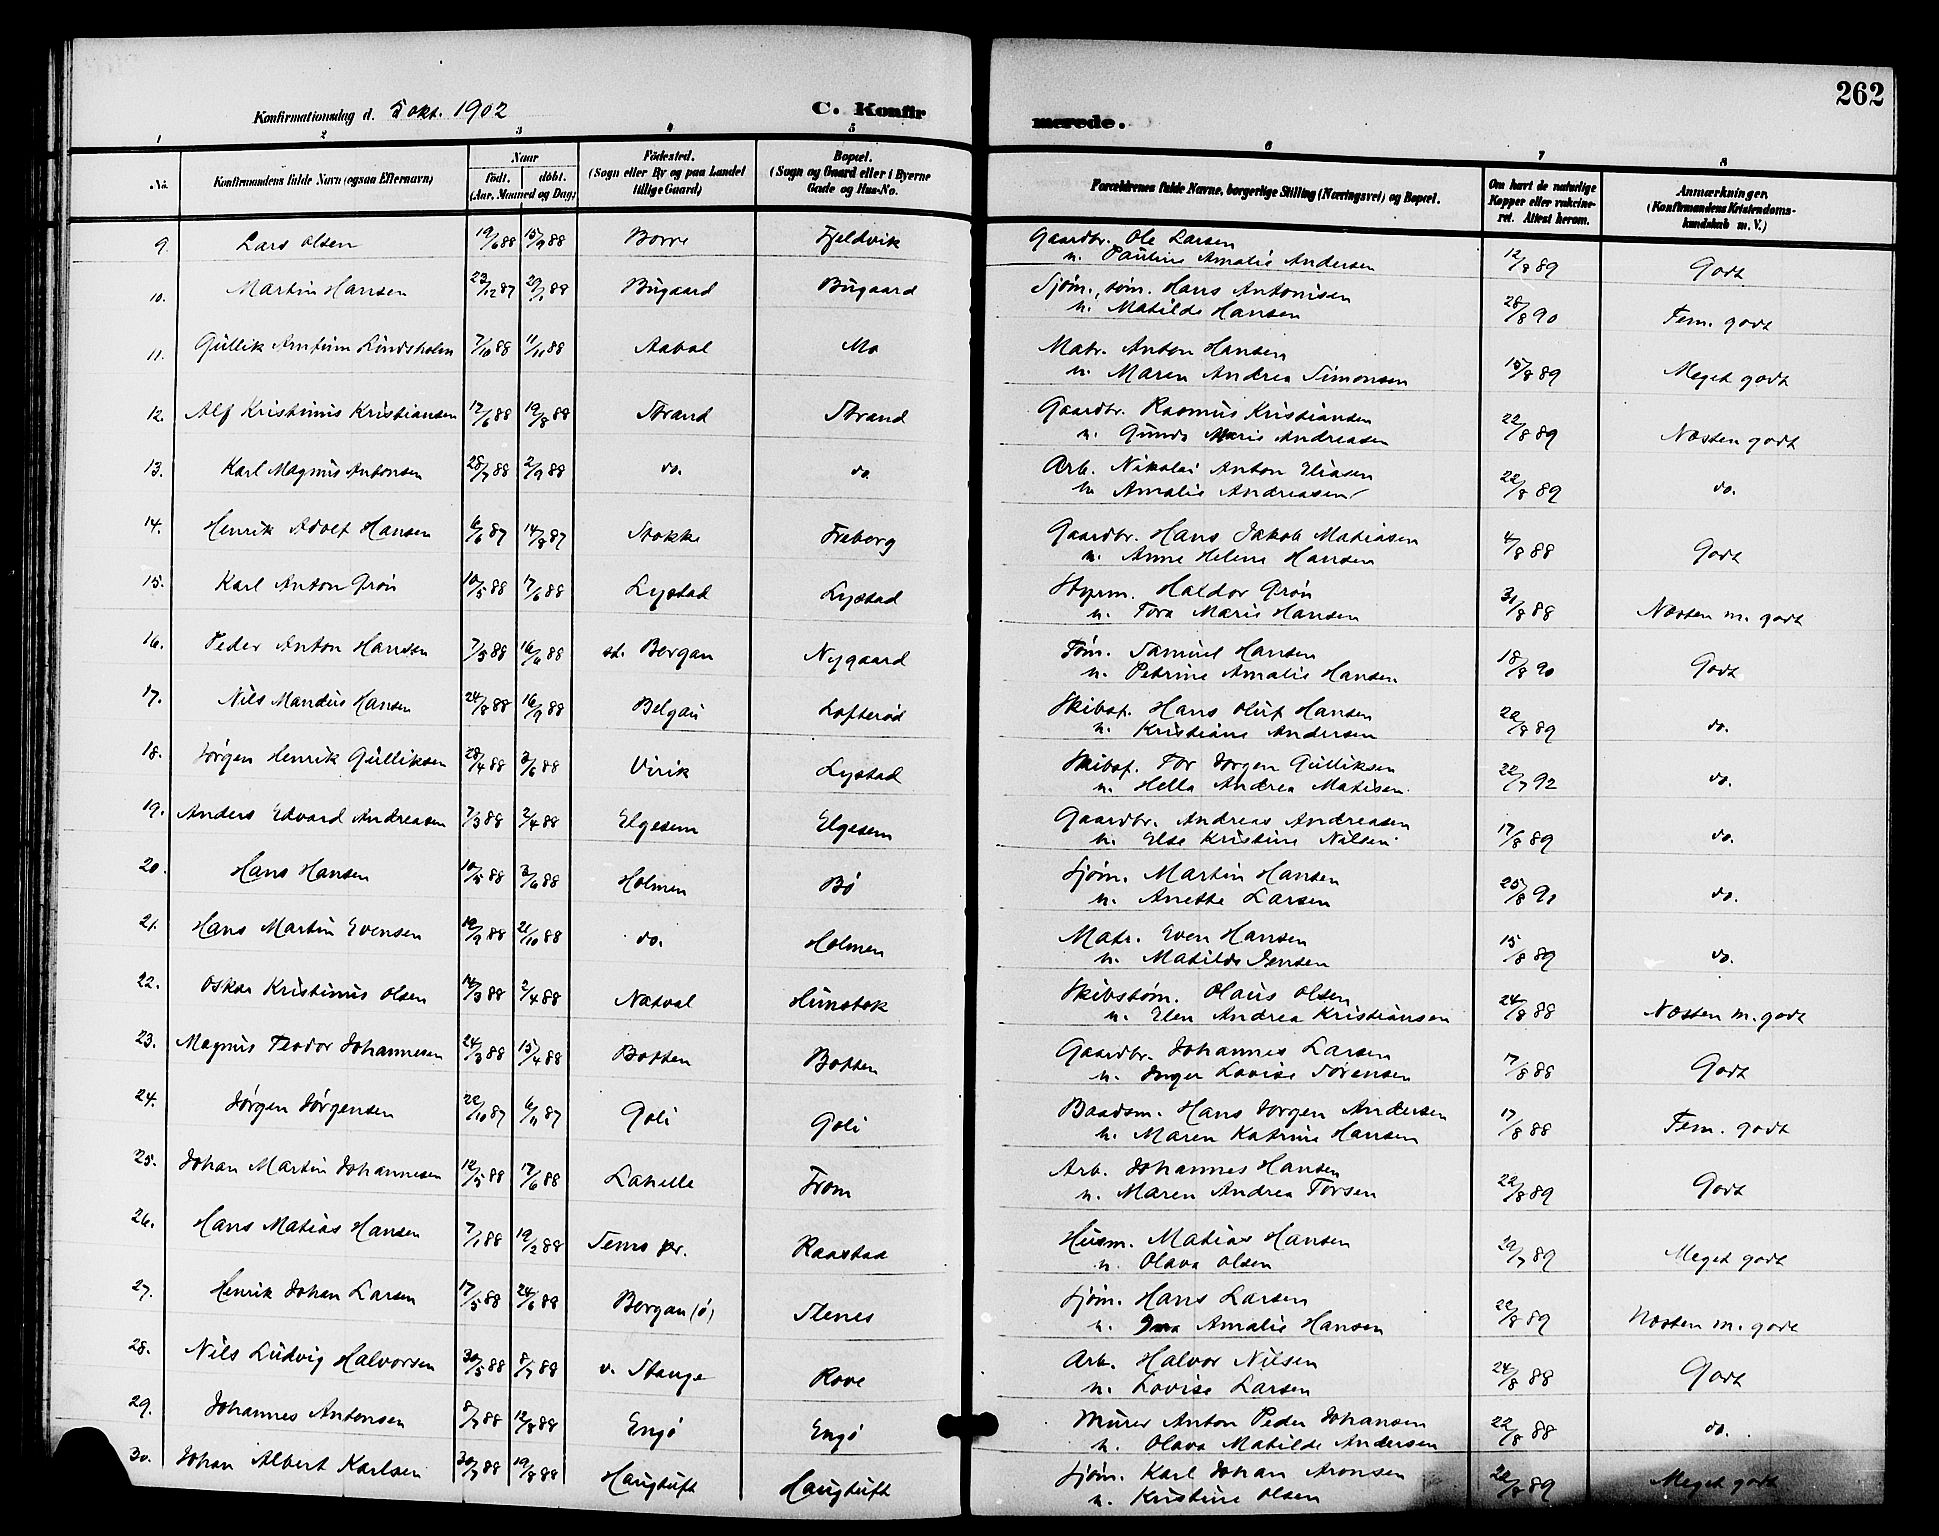 262
Konfirmationsdag d. 5 okt. 1902 C. Konfirmerede.
1 2 3 4 5 6 7 8
No. Konfirmandens fulde Navn (ogsaa Efternavn) Naar født. døbt. (Aar, Maaned og Dag) Fødested. (Sogn eller By og paa Landet tillige Gaard) Bopæl. (Sogn og Gaard eller i Byerne Gade og Hus-No. Forældrenes fulde Navne, borgerlige Stilling (Næringsvei) og Bopæl. Om havt de naturlige Kopper eller vakcineret. Attest herom. Anmærkninger. (Konfirmandens Kristendomskundskab m. V.)
9. Lars Olsen 19/6 88 15/9 88 Borre Fjeldvik Gaardbr. Ole Larsen 12/8 89 Godt
u. Pauline Amalie Andersen
10. Martin Hansen 23/12 87 29/1 88 Bugaard Bugaard Sjøm., tøm. Hans Antonisen 28/8 90 Tem. godt
u. Matilde Hansen
11. Gullik Antum Lindsholm 7/10 88 11/11 88 Aaval Mo Matr. Anton Hansen 15/8 89 Meget godt
u. Maren Andrea Simonsen
12. Alf Kristinus Kristiansen 17/6 88 19/8 88 Strand Strand Gaardbr. Rasmus Kristiansen 22/8 89 Næsten godt
u. Gunda Marie Andreasen
13. Karl Magnus Antonsen 28/7 88 2/9 88 do. do. Arb. Nikolai Anton Eliasen 22/8 89 do.
u. Amalie Andreasen
14. Henrik Adolf Hansen 6/6 87 14/8 87 Stokke Freberg Gaardbr. Hans Jakob Matiasen 4/8 88 Godt
u. Anne Helene Hansen
15. Karl Anton Grøn 10/5 88 17/6 88 Lystad Lystad Styrm. Haldor Grøn 31/8 88 Næsten m. godt
u. Tora Marie Hansen
16. Peder Anton Hansen 7/5 88 16/6 88 st. Bergan Nygaard Tøm. Samuel Hansen 18/8 90 Godt
u. Petrine Amalie Hansen
17. Nils Mandus Hansen 24/8 88 16/9 88 Belgau Lofterød Skibsf. Hans Oluf Hansen 22/8 89 do.
u. Kristiane Andersen
18. Jørgen Henrik Gulliksen 28/4 88 3/6 88 Virik Lystad Skibsf. Tor Jørgen Gulliksen 22/7 92 do.
u. Hella Andrea Matisen
19. Anders Edvard Andreasen 7/3 88 2/4 88 Elgesem Elgesem Gaardbr. Andreas Andreasen 17/8 89 do.
u. Else Kristine Nilsen
20. Hans Hansen 10/5 88 3/6 88 Holmen Bø Sjøm. Martin Hansen 25/8 91 do.
u. Anette Larsen
21. Hans Martin Evensen 12/9 88 21/10 88 do. Holmen Matr. Even Hansen 15/8 89 do.
u. Matilde Jensen
22. Oskar Kristinus Olsen 14/3 88 2/4 88 Natval Hunstok Skibstøm. Olaus Olsen 24/8 88 Næsten m. godt
u. Elen Andrea Kristiansen
23. Magnus Teodor Johannesen 24/3 88 15/4 88 Botten Botten Gaardbr. Johannes Larsen 17/8 88 Godt
u. Inger Lovise Sørensen
24. Jørgen Jørgensen 22/10 87 6/11 87 Goli Goli Baadsm. Hans Jørgen Andersen 17/8 88 Tem. godt
u. Maren Katrine Hansen
25. Johan Martin Johannesen 12/5 88 17/6 88 Lahelle From Arb. Johannes Hansen 22/8 89 Godt
u. Maren Andrea Torsen
26. Hans Matias Hansen 7/1 88 19/2 88 Sems pr. Raastad Husm. Matias Hansen 29/7 89 Meget godt
u. Olava Olsen
27. Henrik Johan Larsen 17/5 88 24/6 88 Bergan (ø) Stenes Sjøm. Hans Larsen 22/8 89 Næsten m. godt
u. Ina Amalie Hansen
28. Nils Ludvig Halvorsen 30/5 88 8/7 88 v. Stange Rove Arb. Halvor Nilsen 24/8 88 Godt
u. Lovise Larsen
29. Johannes Antonsen 8/7 88 12/8 88 Engø Engø Murer Anton Peder Johansen 22/8 88 do.
u. Olava Matilde Andersen
30. Johan Albert Karlsen 30/7 88 19/8 88 Haugtuft Haugtuft Sjøm. Karl Johan Aronsen 22/8 89 Meget godt
u. Kristine Olsen